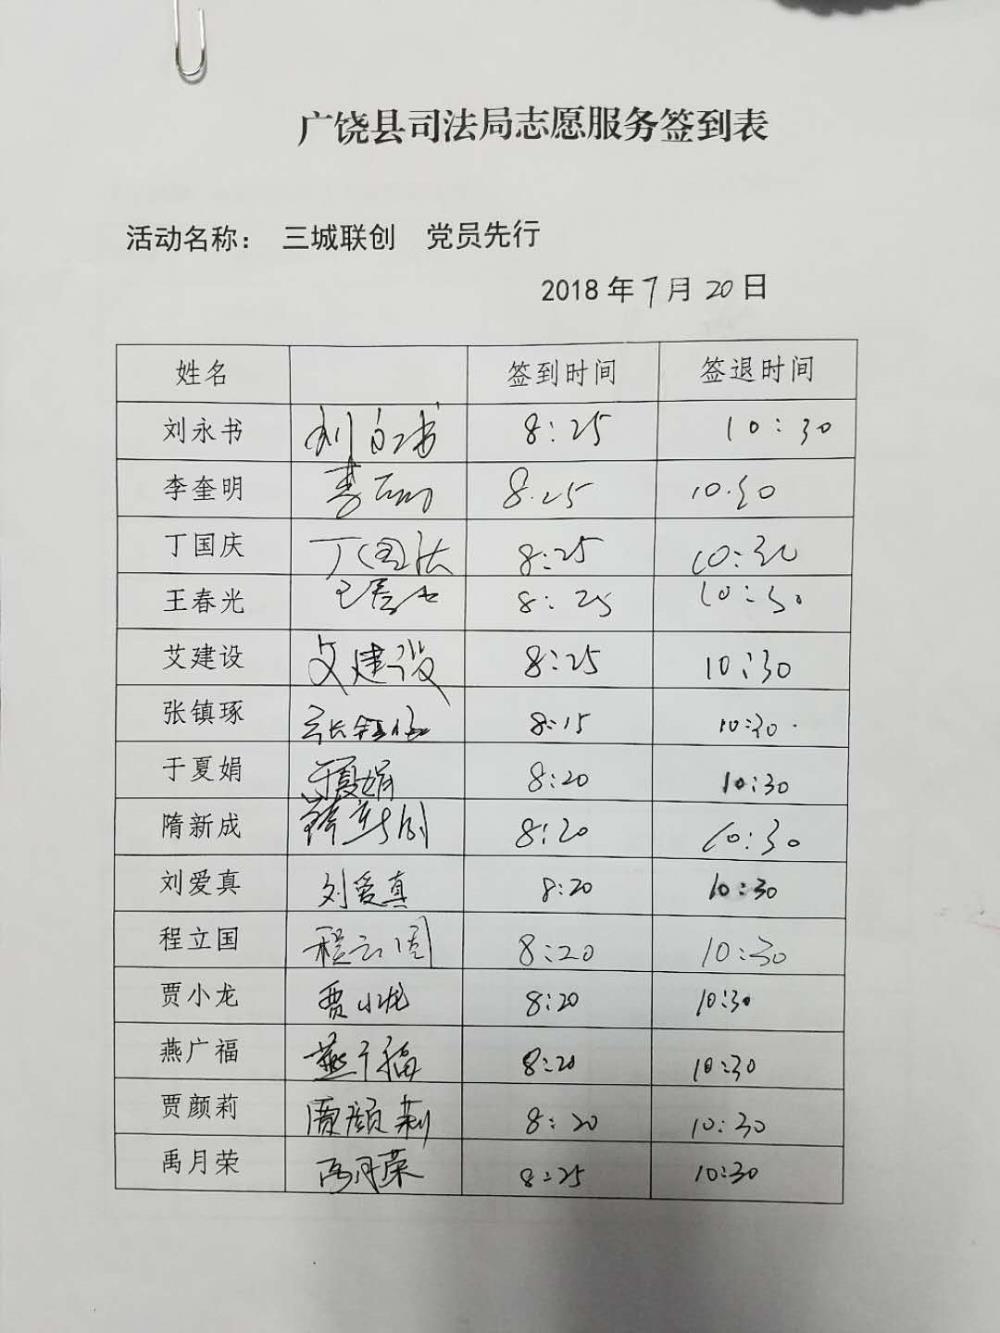 广饶县司法局志愿服务签到表
活动名称： 三城联创 党员先行
2018年7月20日
姓名 签到时间 签退时间
刘永书 刘永书 8:25 10:30
李奎明 李奎明 8:25 10:30
丁国庆 丁国庆 8:25 10:30
王春光 王春光 8:25 10:30
艾建设 艾建设 8:25 10:30
张镇琢 张镇琢 8:15 10:30
于夏娟 于夏娟 8:20 10:30
隋新成 8:20 10:30
刘爱真 刘爱真 8:20 10:30
程立国 程立国 8:20 10:30
贾小龙 贾小龙 8:20 10:30
燕广福 燕广福 8:20 10:30
贾颜莉 贾颜莉 8:20 10:30
禹月荣 禹月荣 8:25 10:30